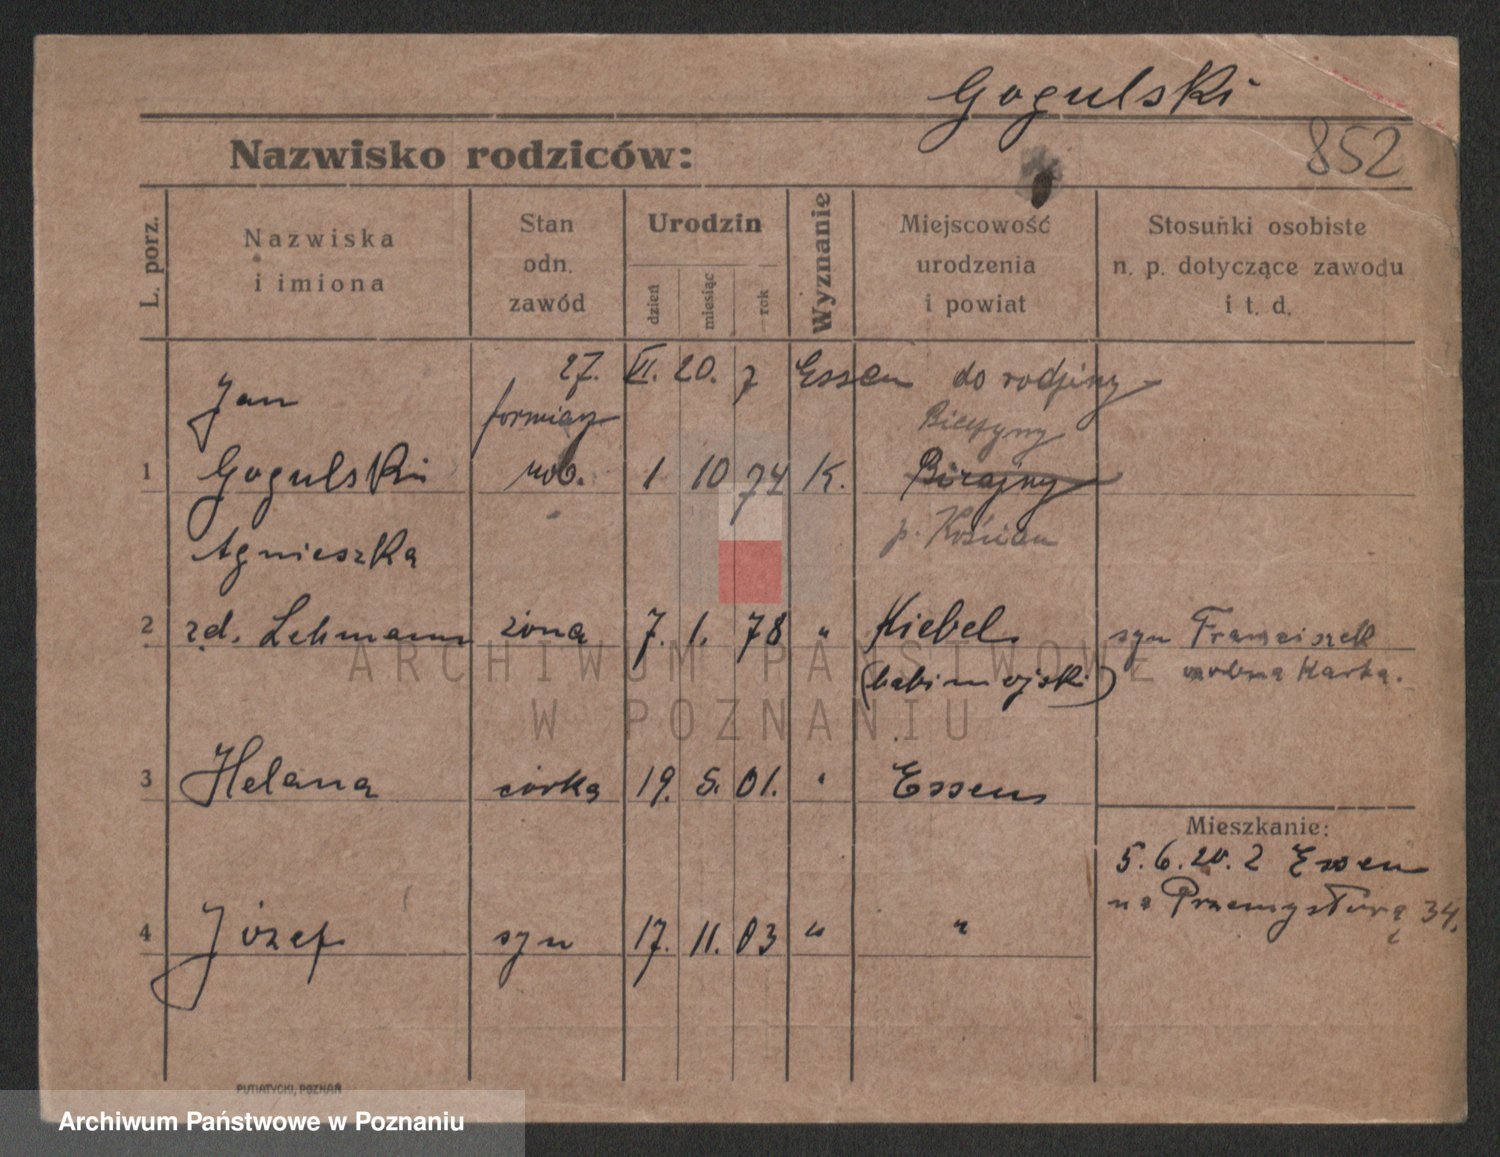 Gogulski
852
Nazwisko rodziców:
L. porz.
Nazwiska
i imiona
Stan
odn.
zawód
Urodzin
dzień
miesiąc
rok
Wyznanie
Miejscowość
urodzenia
i powiat
Stosuńki osobiste
n. p. dotyczące zawodu
i t. d.
27. VI. 20. z Essen do rodziny
Jan formierz
1 Gogulski rob. 1 10 74 K.
p. Kościan
Agnieszka
2 zd. Lehmann żona 7. 1. 78 " Kiebel syn Franciszek
(babimojski) osobna Karta.
3 Helena córka 19. 5. 01. " Essen
Mieszkanie:
5.6.20. z Essen
na Przemysłową 34.
4 Józef syn 17. 11. 03 " "
PUTIATYCKI, POZNAŃ
ARCHIWUM PAŃSTWOWE
W POZNANIU
Archiwum Państwowe w Poznaniu